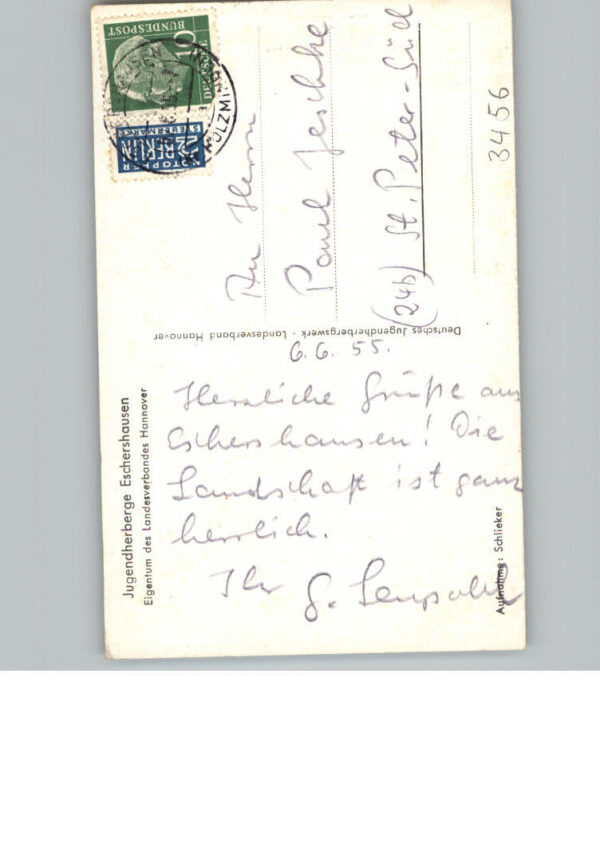 Jugendherberge Eschershausen
Eigentum des Landesverbandes Hannover
6. 6. 55.
Herzliche Grüße aus
Eschershausen! Die
Landschaft ist ganz
herrlich.
Ihr
G.
Aufnahme: Schlieker
Deutsches Jugendherbergswerk - Landesverband Hannover
An Herrn
Paul Jeschke
(24b) St. Peter-Süd
3456
10
DEUTSCHE
BUNDESPOST
NOTOPFER
2 BERLIN
STEUERMARKE